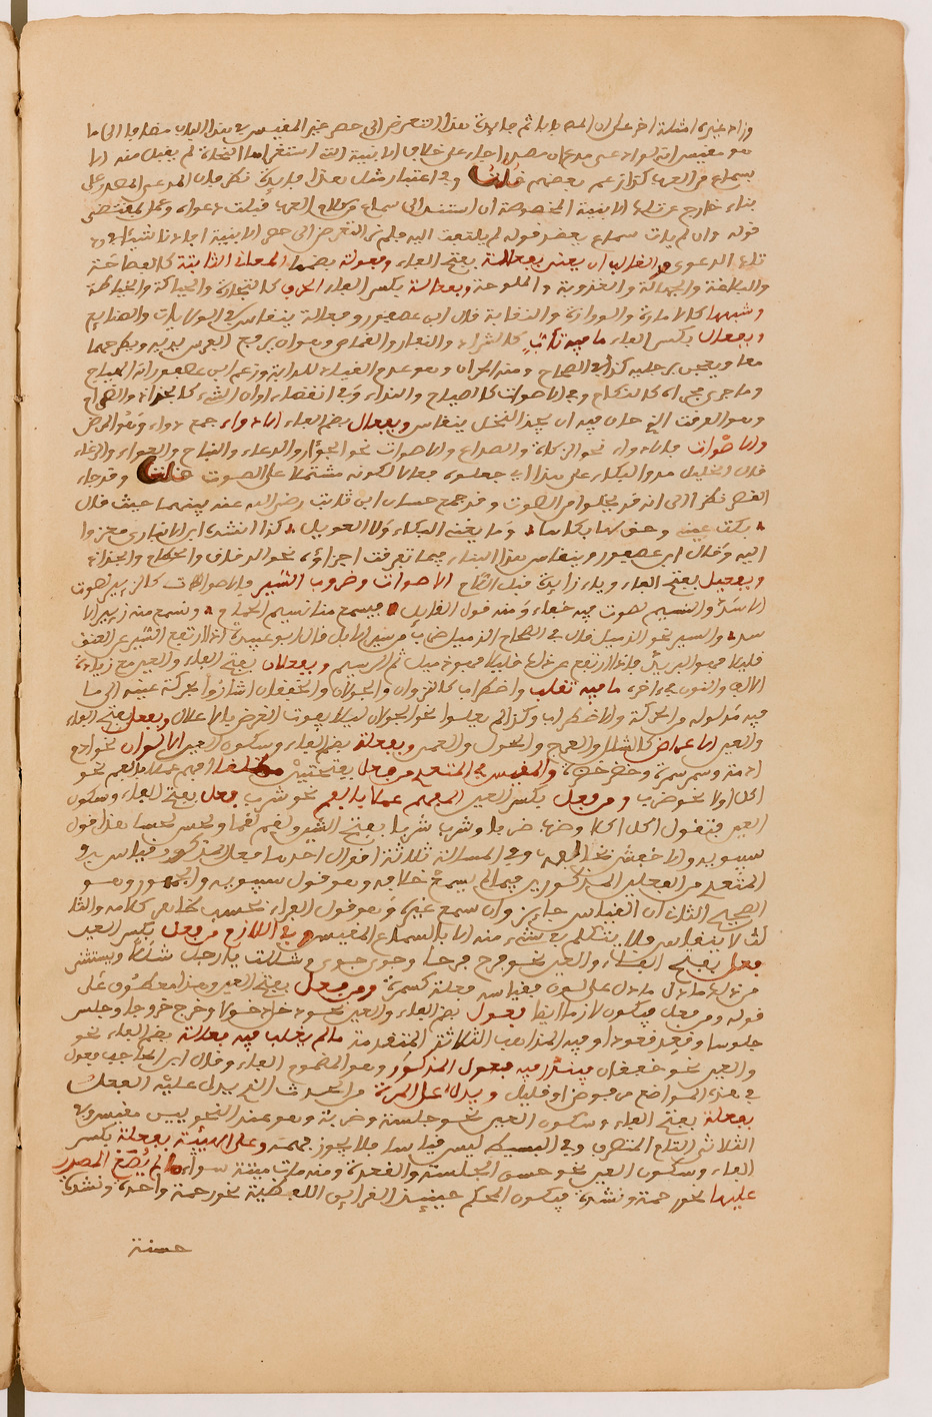 وزاد غيره امثلة اخر على ان المصادر ثم فايدة هذا التعرض الى حصر غير المقيس في هذا الباب مضافا الى ما
هو مقيس انه لو ادعى مدع ان مصدرا جاء على خلاف الابنية التي استقراها النحاة لم يقبل منه الا
بسماع من العرب كذا زعم بعضهم قلت وفي اعتبار مثل هذا فايدة نظر فان المدعي المصدر على
بناء خارج عن تلك الابنية المخصوصة ان استند الى سماع من العرب قبلت دعواه وعمل بمقتضى
قوله وان لم يات بسماع يعضد قوله لم يلتفت اليه فلم نر التعرض الى حصر الابنية افادنا شيئا في رد
تلك الدعوى والغالب ان يعنى بفعالة بفتح الفاء وفعولة بضمها المعاني الثابتة كالفصاحة
والنظافة والجهالة والعذوبة والملوحة وبفعالة بكسر الفاء الحرف كالتجارة والحياكة والخياطة
وشبهها كالامارة والوزارة والنقابة قال ابن عصفور وفعالة ينقاس في الولايات والصنايع
وبفعال بكسر الفاء ما فيه تأبّ كالشراد والنفار والقماص وهو ان يرفع الفرس يديه ويطرحهما
معا ويعجن برجليه كذا في الصحاح ومنه الحران وهو عدم انقياد للدابة وزعم ابن عصفور انه الهياج
وما جرى مجراه كالنكاح وفي الاصوات كالصياح والنداء وفي انقضاء اوان الشيء كالجذاذ والصرام
وهو الوقت الذي حان فيه ان يجذ النخل ينقاس وبفعال بضم الفاء الادواء جمع داء وهو المرض
والاصوات فالادواء نحو الزكام والصداع والاصوات نحو الجؤار والدعاء والنباح والعواء والرغاء
قال الخليل مدوا البكاء على هذا اي جعلوه فعالا لكونه مشتملا على الصوت قلت وقد جاء
القصر نظرا الى انه قد يخلو من الصوت وقد جمع حسان ابن ثابت رضي الله عنه بينهما حيث قال
بكت عيني وحق لها بكاها وما يغني البكاء ولا العويل كذا انشده ابن الانباري معزوا
اليه وقال ابن عصفور وينقاس هذا البناء فيما تفرقت اجزاؤه نحو الدقاق والحطام والجذاذ
وبفعيل بفتح الفاء وياء زايدة قبل اللام الاصوات وضروب السير فالاصوات كالزئير لصوت
الاسد والنسيم لصوت فيه خفاء ومنه قول القايل فيسمع منا نسيم الحجاج ونسمع منه زئير الا
سد والسير نحو الذميل قال في الصحاح الذميل ضرب من سير الابل قال ابو عبيدة اذا ارتفع السير عن العنق
قليلا فهو التزيد فاذا ارتفع عن ذلك قليلا فهو ذميل ثم الرسيم وبفعلان بفتح الفاء والعين مع زيادة
الالف والنون في اخره ما فيه تقلب واضطراب كالنزوان والجولان والخفقان اشاروا بحركة عينه الى ما
في مدلوله من الحركة والاضطراب وكذا لم يعلوا نحو الجولان ليلا يفوت الغرض بالاعلال وبفعل بفتح الفاء
والعين الاعراض كالشلل والعرج والحول والعمى وبفعلة بضم الفاء وسكون العين الالوان نحو ادم
ادمة وسمر سمرة وخضر خضرة والمقيس في المتعدي من فعل بفتحتين مطلقا افهم عملا بالفم نحو
اكل او لا نحو ضرب ومن فعل بكسر العين المفهم عملا بالفم نحو شرب فعل بفتح الفاء وسكون
العين فتقول اكل اكلا وضرب ضربا وشرب شربا بفتح الشين ولقم لقما ولحس لحسا هذا قول
سيبويه والاخفش وفي المسالة ثلاثة اقوال احدها فعل المذكور قياس في
المتعدي من الفعلين المذكورين فيما لم يسمع خلافه وهو قول سيبويه والجمهور وهو
الصحيح الثاني ان القياس جايز وان سمع غيره وهو قول الفراء بحسب ظاهر كلامه والثا
لث لا ينقاس فلا يتكلم في شيء منه الا بالسماع المقيس وفي اللازم من فعل بكسر العين
فعل بفتح الفاء والعين نحو فرح فرحا وجوي جوى وشلت يد الرجل شللا ويستثنى
من ذلك ما دل على لون فقياسه فعلة كسمرة ومن فعل بفتح العين وهذا معطوف على
قوله ومن فعل فيكون لازما ايضا فعول بضم الفاء والعين نحو دخل دخولا وخرج خروجا وجلس
جلوسا وقعد قعودا وفيه المذاهب الثلاثة المتقدمة ما لم يغلب فيه فعالة بضم الفاء نحو
والعين نحو خفقان فيندر فيه فعول المذكور وهو المضموم الفاء وقال ابن الحاجب فعول
في هذه المواضع مرفوض او قليل ويدل على المرة من الحدث الذي يدل عليه الفعل
بفعلة بفتح الفاء وسكون العين نحو جلسة وضربة وهو عند النحويين مقيس في
الثلاثي التام المتصرف وفي البسيط ليس قياسا فلا يجوز فهمة وعلى الهيئة بفعلة بكسر
الفاء وسكون العين نحو حسن الجلسة والقعدة ومنه مات ميتة سوء ما لم يصغ المصدر
عليها نحو رحمة ونشدة فيكون المحكم حينيذ القراين اللفظية نحو رحمة واحدة ونشدة
حسنة